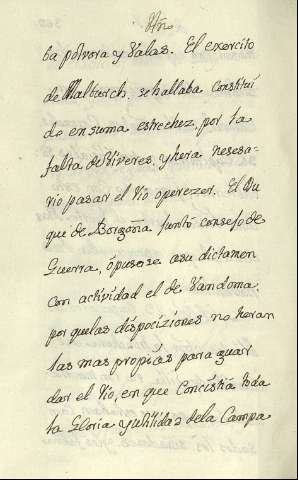 ba polvora y Valas. El exercito
de Malburch. se hallaba Constitui
do en suma estrechez, por la
falta de Viveres, y hera nesesa-
rio pasar el rio operezer. El Du
que de Borgoña juntó consejo de
Guerra, ópusose asu dictamen
con actividad el de Vandoma,
por quelas disposiziones no heran
las mas propiás para guar
dar el rio, en que Concistia toda
la Gloria y utilidad dela Campa